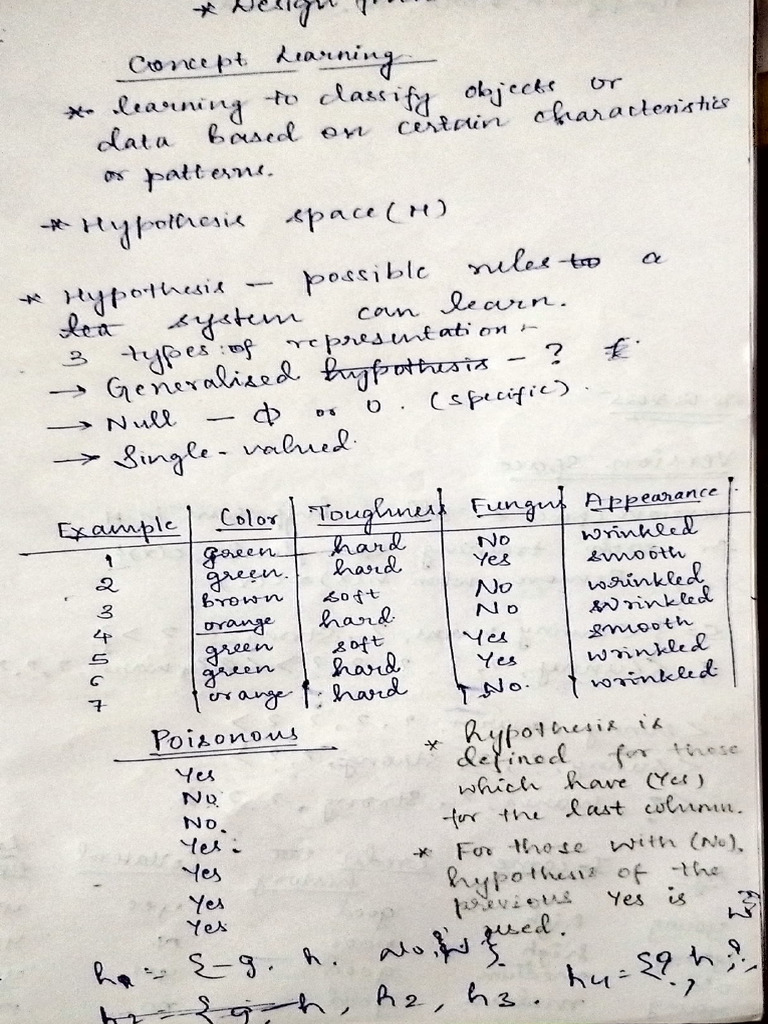 * Design
Concept Learning
* learning to classify objects or
data based on certain characteristics
or patterns.
* Hypothesis space (H)
* Hypothesis – possible rules to a
lea system can learn.
3 types of representation :-
→ Generalised hypothesis – ?
→ Null – Φ or 0. (specific).
→ Single-valued.
Example Color Toughness Fungus Appearance
1 green hard No wrinkled
2 green. hard Yes smooth
3 brown soft No wrinkled
4 orange hard No wrinkled
5 green soft Yes smooth
6 green hard Yes wrinkled
7 orange hard No. wrinkled
Poisonous
Yes
No
No.
Yes
Yes
Yes
Yes
* hypothesis is
defined for those
which have (Yes)
for the last column.
* For those with (No).
hypothesis of the
previous Yes is
used.
= {– g. h. No, w}
h2 = {g, h, h2, h3. h4 = {?, h, ?,